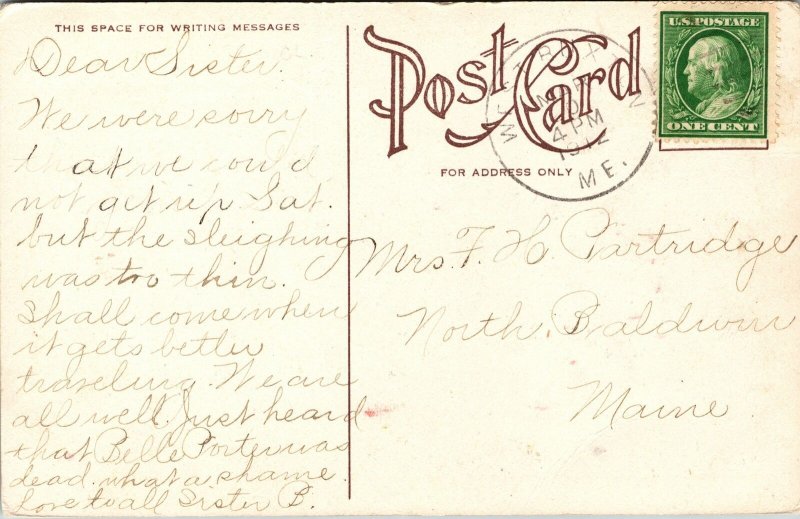 THIS SPACE FOR WRITING MESSAGES
Dear Sister.
We were sorry
that we could
not get up Sat.
but the sleighing
was too thin.
Shall come when
it gets better
traveling. We are
all well. Just heard
that Belle Porter was
dead. what a shame.
Love to all Sister B.
Post Card
FOR ADDRESS ONLY
4 PM
1912
ME.
U.S. POSTAGE
ONE CENT
Mrs. F. H. Partridge
North Baldwin
Maine